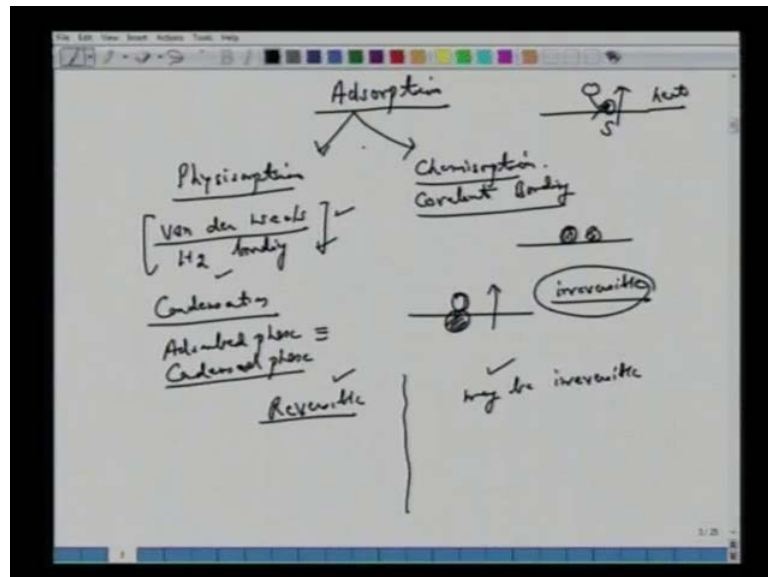 File Edit View Insert Actions Tools Help
Adsorption
heat
S
Physisorption
Van der Waals
H2 bonding
Condensation
Adsorbed phase ≡
Condensed phase
Reversible
Chemisorption.
Covalent Bonding
irreversible
may be irreversible